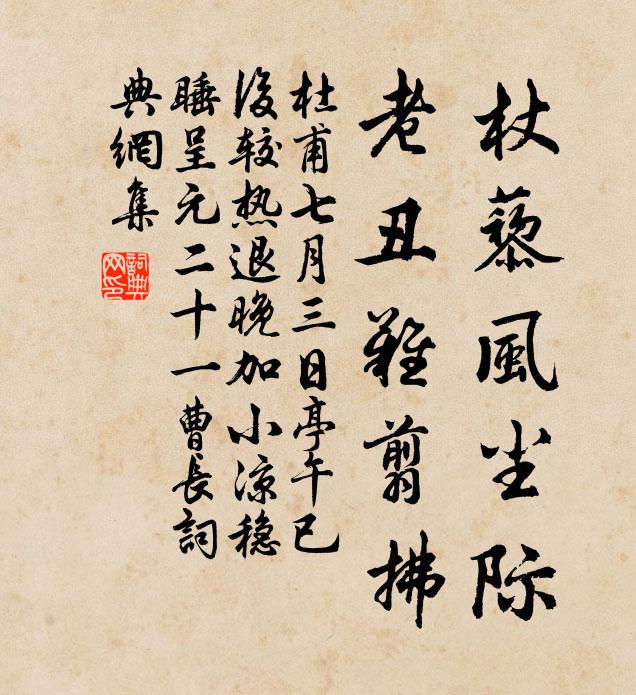 杖藜風尘际
老丑難翦拂
杜甫七月三日亭午已
後较热退晚加小凉稳
睡呈元二十一曹長詞
典網集
詞典
网印